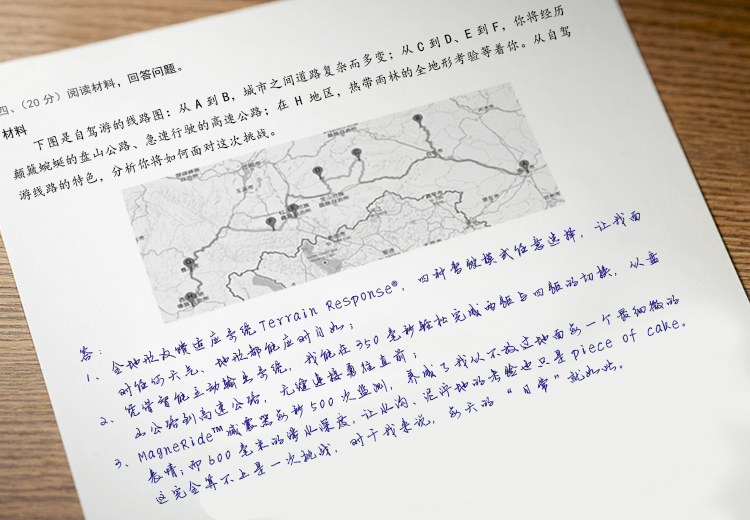 四、(20 分) 阅读材料，回答问题。
材料
下图是自驾游的线路图：从 A 到 B，城市之间道路复杂而多变；从 C 到 D、E 到 F，你将经历
颠簸蜿蜒的盘山公路、急速行驶的高速公路；在 H 地区，热带雨林的全地形考验等着你。从自驾
游线路的特色，分析你将如何面对这次挑战。
答：
1、全地形反馈适应系统 Terrain Response®，四种驾驶模式任意选择，让我面
对任何天气、地形都能应对自如；
2、凭借智能主动输出系统，我能在 350 毫秒轻松完成两驱与四驱的切换，从盘
山公路到高速公路，无缝连接勇往直前；
3、MagneRide™减震器每秒 500 次监测，养成了我从不放过地面每一个最细微的
表情；而 600 毫米的涉水深度，让水沟、泥泞地的考验也只是 piece of cake。
这完全算不上是一次挑战，对于我来说，每天的“日常”就如此。